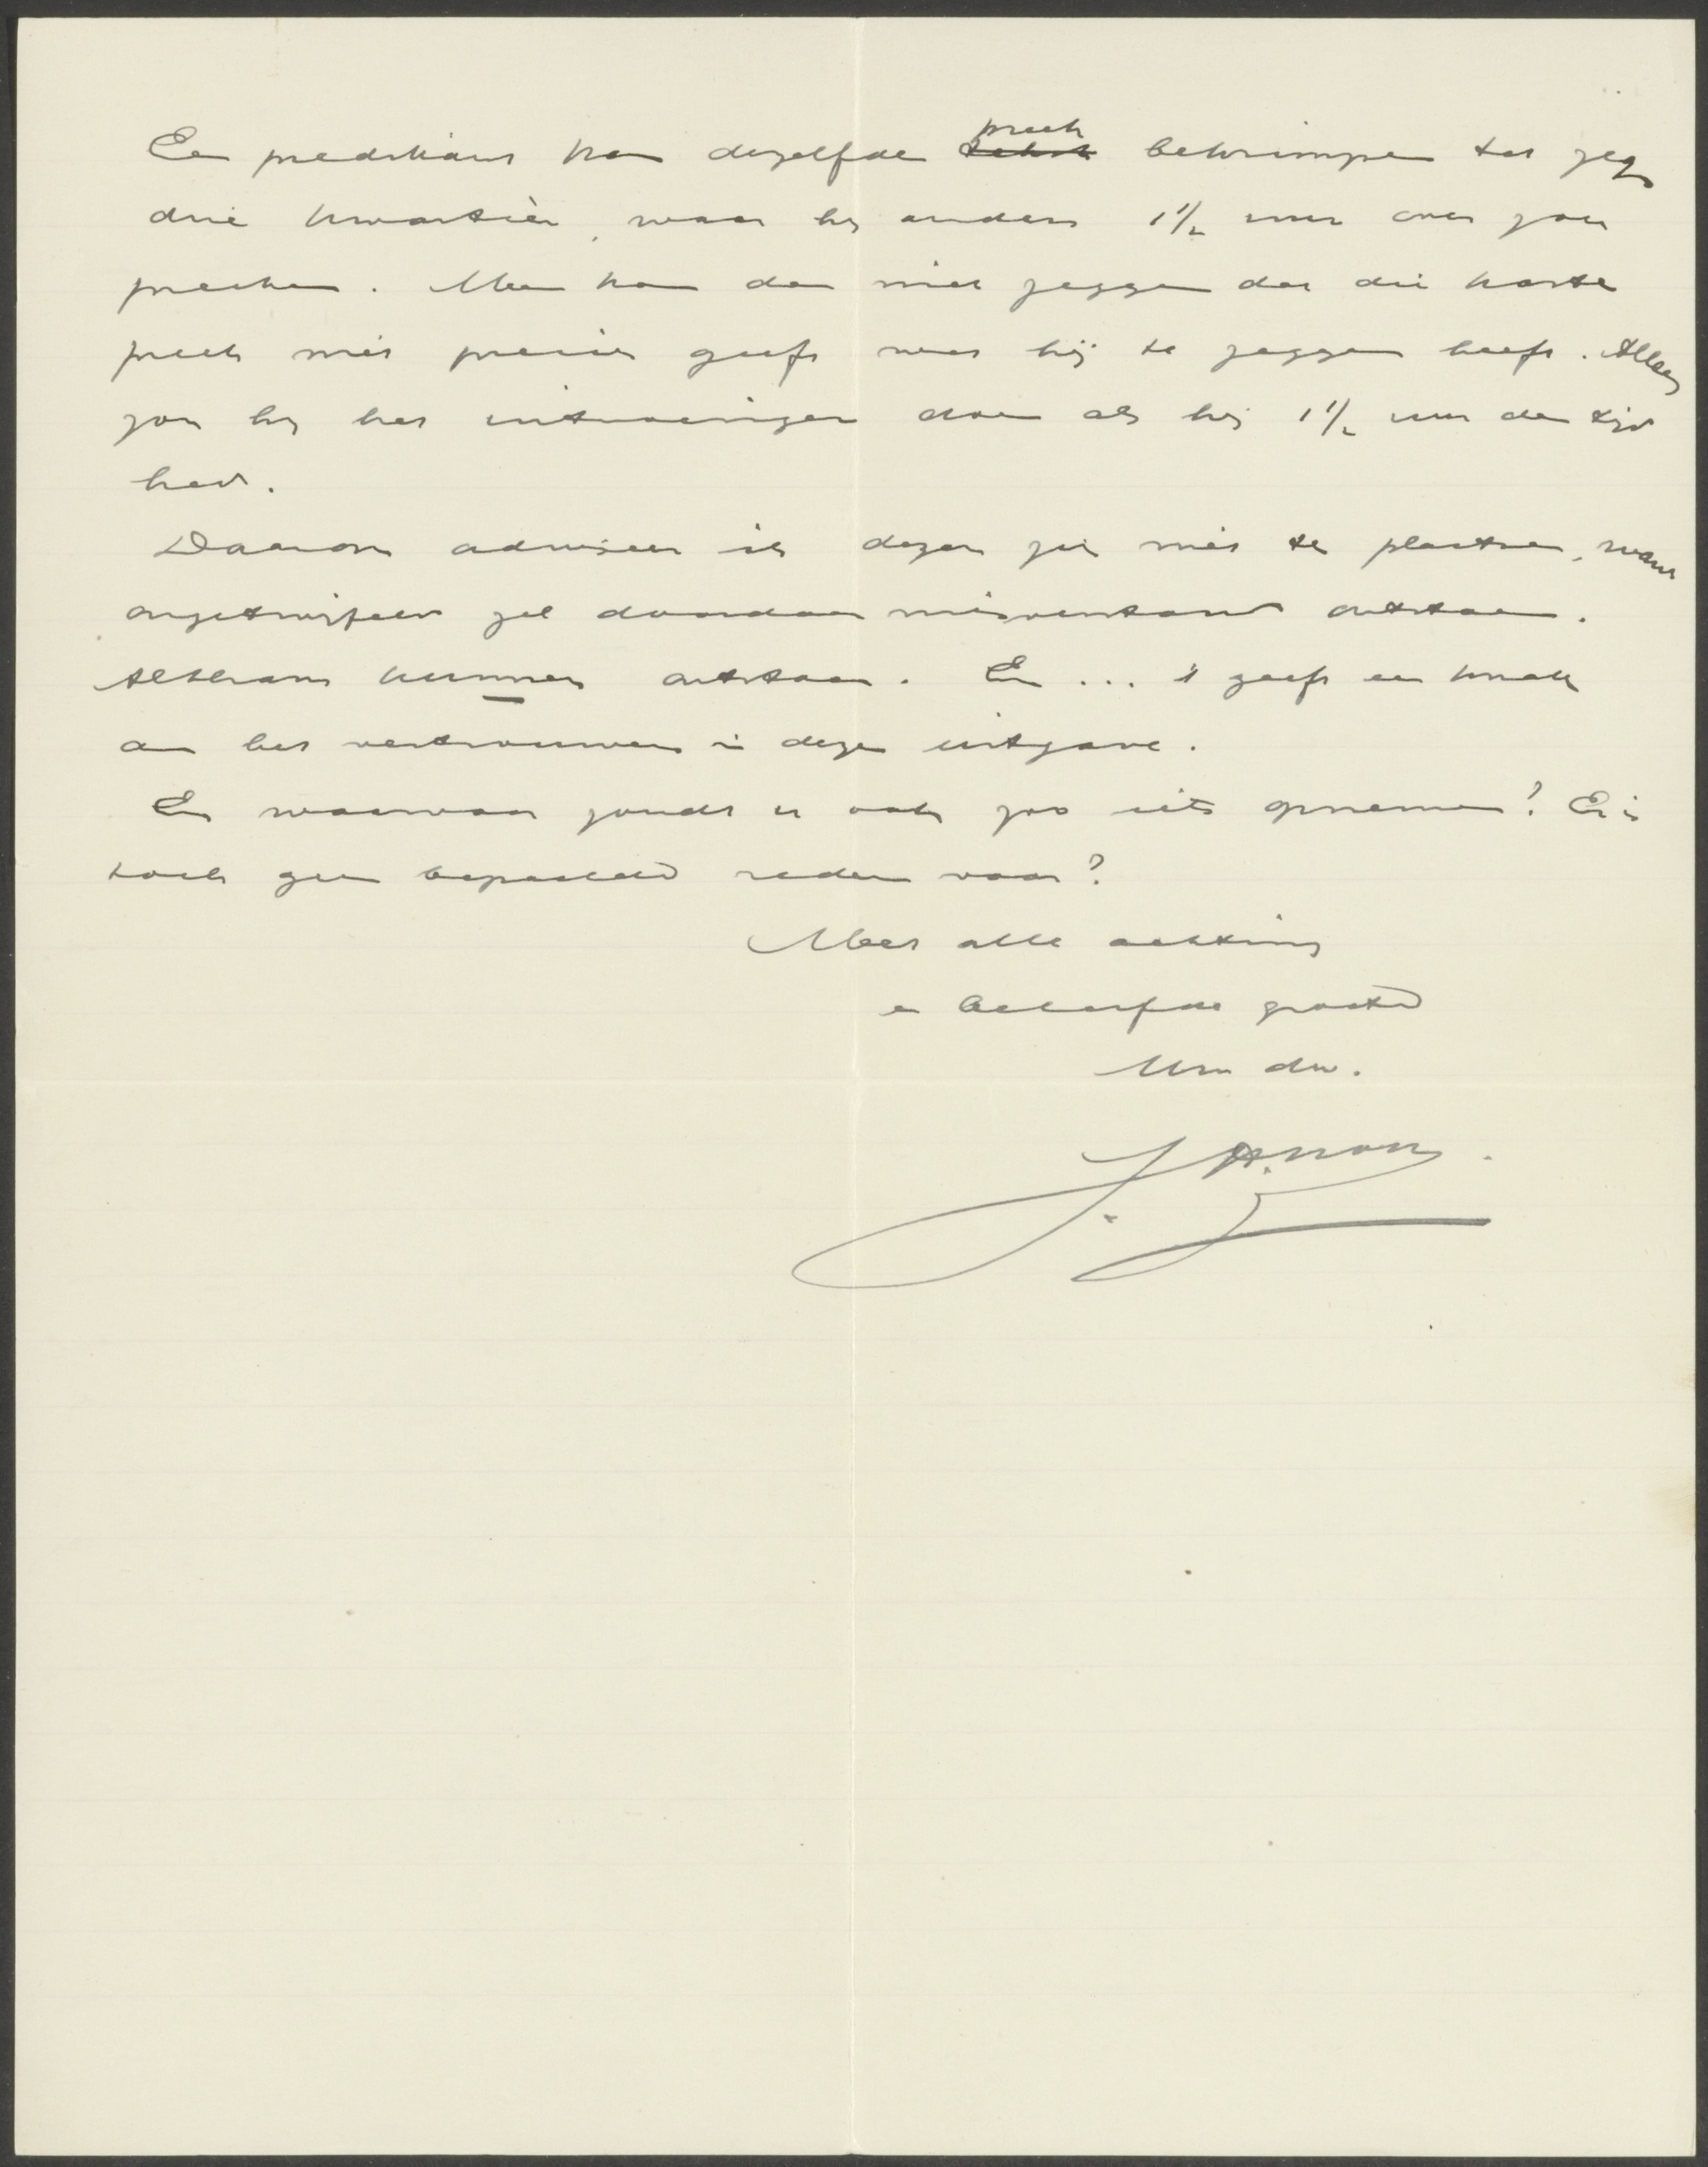 Een predikant kan dezelfde preek bekrimpen tot zegge
drie kwartier, waar hij anders 1 1/2 uur over zou
preeken. Men kan dan niet zeggen dat die korte
preek niet precies geeft wat hij te zeggen heeft. Alleen
zou hij het uitvoeriger doen als hij 1 1/2 uur den tijd
had.
Daarom adviseer ik dezen zin niet te plaatsen, want
ongetwijfeld zal daardoor misverstand ontstaan.
Althans kunnen ontstaan. En ... 't geeft een knak
aan het vertrouwen in deze uitgave.
En waarvoor zoudt u ook zoo iets opnemen? Er is
toch geen bepaalde reden voor?
Met alle achting
en beleefde groeten
Uw dw.